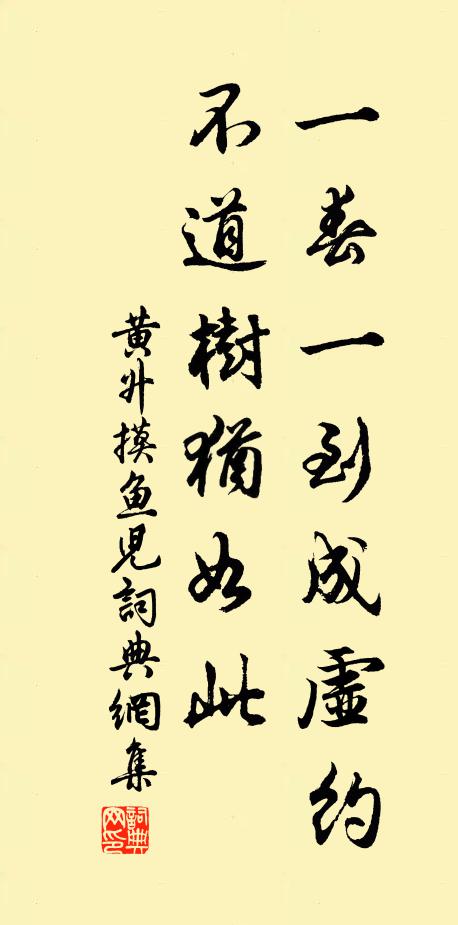 一春一到成虛約
不道樹猶如此
黃升摸魚兒詞典網集
詞典網印